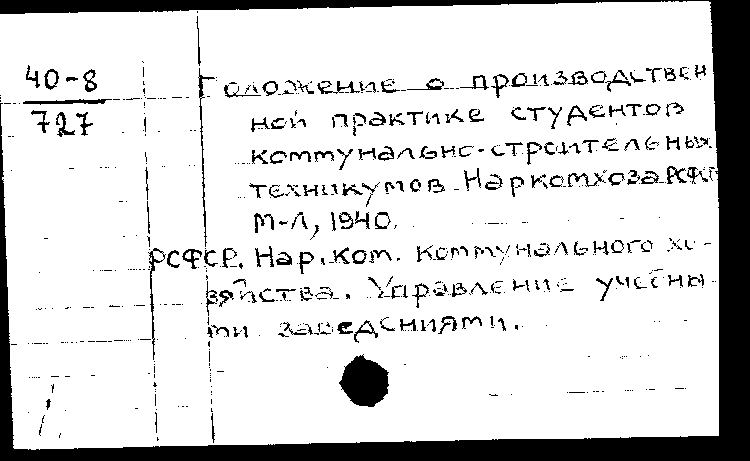 40-8
727
Положение о производствен
ной практике студентов
коммунально-строительных
техникумов Наркомхоза РСФСР
М-Л, 1940.
РСФСР. Нар. ком. коммунального хо-
зяйства. Управление учебны-
ми заведениями.